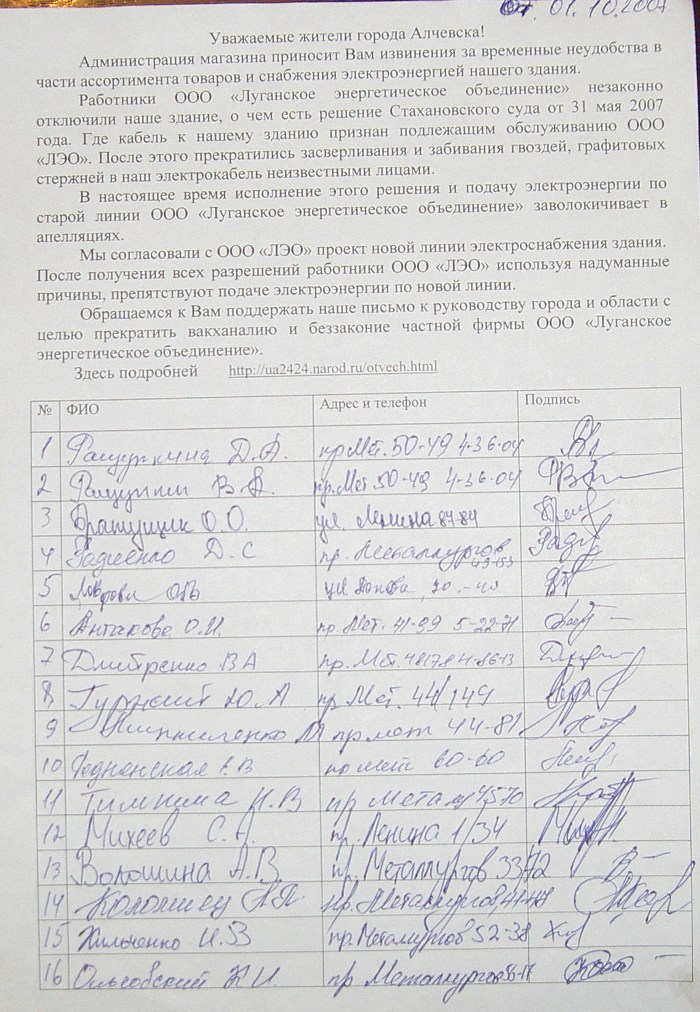 от 01.10.2007
Уважаемые жители города Алчевска!
Администрация магазина приносит Вам извинения за временные неудобства в
части ассортимента товаров и снабжения электроэнергией нашего здания.
Работники ООО «Луганское энергетическое объединение» незаконно
отключили наше здание, о чем есть решение Стахановского суда от 31 мая 2007
года. Где кабель к нашему зданию признан подлежащим обслуживанию ООО
«ЛЭО». После этого прекратились засверливания и забивания гвоздей, графитовых
стержней в наш электрокабель неизвестными лицами.
В настоящее время исполнение этого решения и подачу электроэнергии по
старой линии ООО «Луганское энергетическое объединение» заволокичивает в
апелляциях.
Мы согласовали с ООО «ЛЭО» проект новой линии электроснабжения здания.
После получения всех разрешений работники ООО «ЛЭО» используя надуманные
причины, препятствуют подаче электроэнергии по новой линии.
Обращаемся к Вам поддержать наше письмо к руководству города и области с
целью прекратить вакханалию и беззаконие частной фирмы ООО «Луганское
энергетическое объединение».
Здесь подробней http://ua2424.narod.ru/otvech.html
№ ФИО Адрес и телефон Подпись
1 Д.А. пр Мет. 50-49 4-36-04
2 В. пр. Мет 50-49 4-36-04
3 Братущик О.О. ул. Ленина 84-84
4 Радченко Д.С пр. Металлургов 49-153
5 ул Попова, 20-40
6 О.И. пр. Мет. 41-99 5-22-71
7 Дмитренко В А пр. Мет.
8 Ю.А пр Мет. 44/149
9 пр мет 44-81
10 В.В по мет 60-60
11 Тимкина Н.В пр Метал
12 Михеев С.А. пр. Ленина 1/34
13 Волошина А.В. пр. Металлургов 33
14 Коломиец Н.П. пр. Металлургов
15 Хильченко И.В пр. Металлургов 52-38
16 Ольховский К И. пр Металлургов